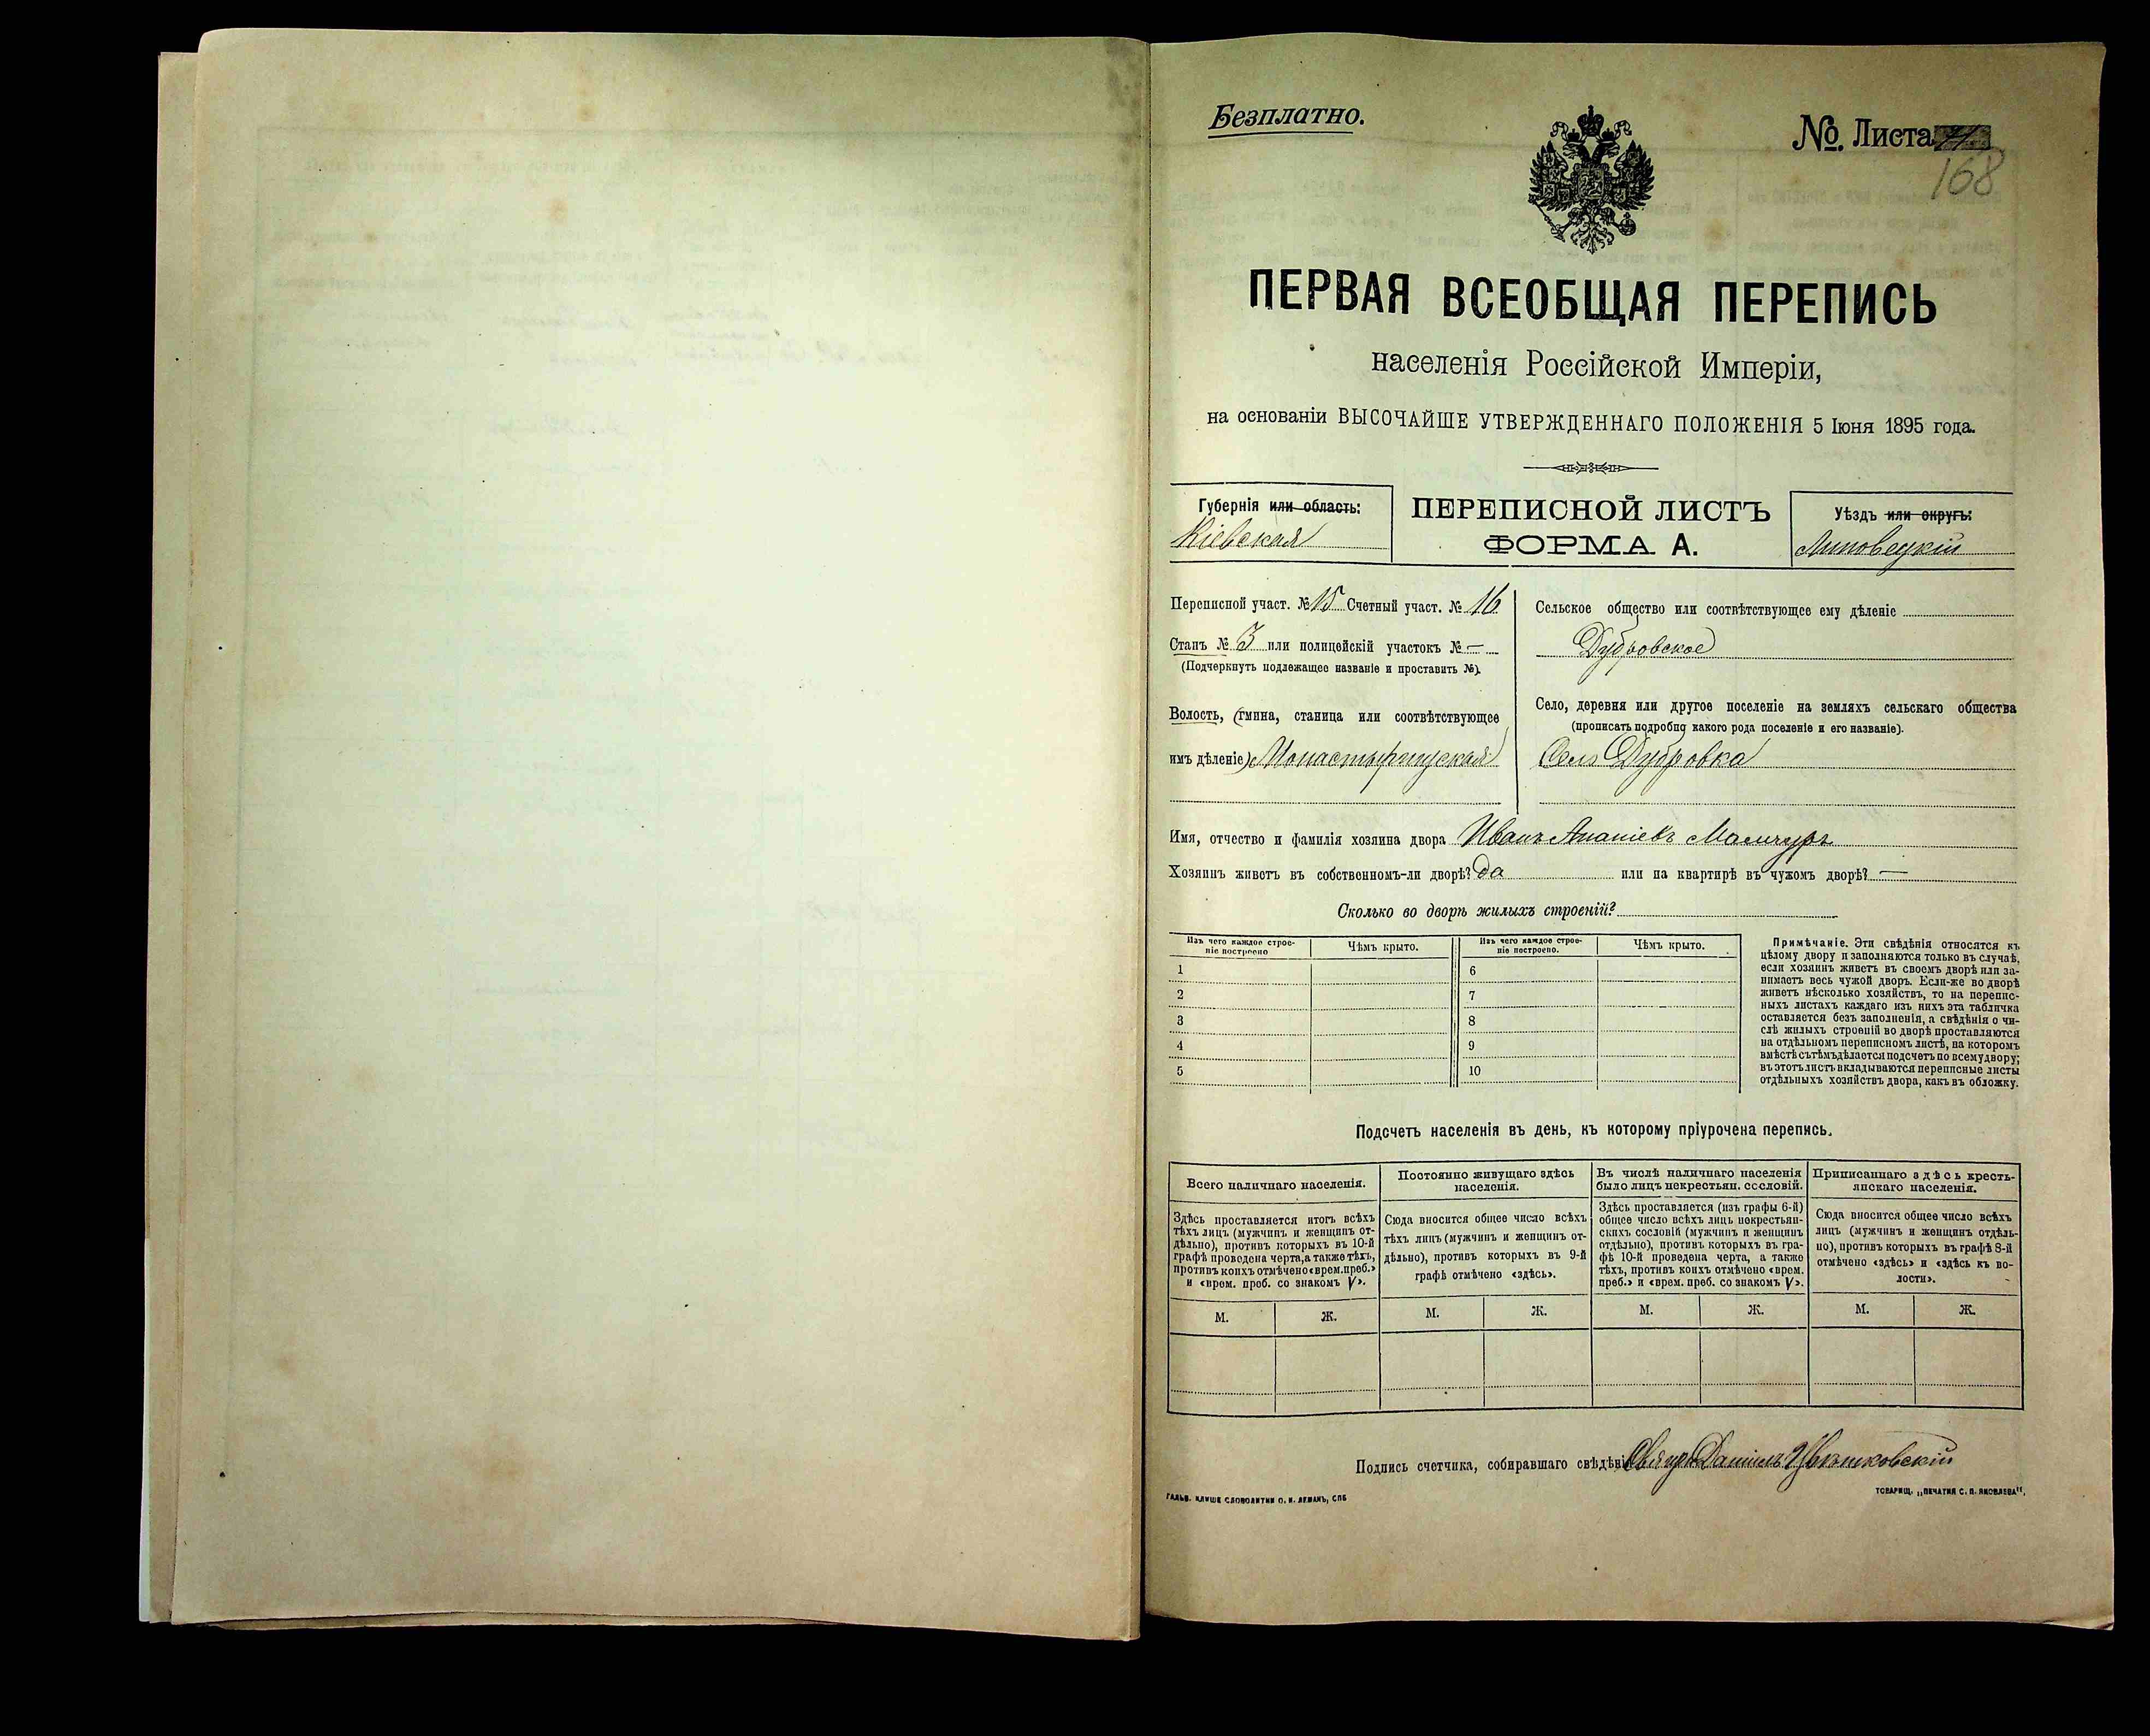 Безплатно.
№. Листа
168
ПЕРВАЯ ВСЕОБЩАЯ ПЕРЕПИСЬ
населенія Россійской Имперіи,
на основаніи ВЫСОЧАЙШЕ УТВЕРЖДЕННАГО ПОЛОЖЕНІЯ 5 Іюня 1895 года.
Губернія или область:
Кіевская
ПЕРЕПИСНОЙ ЛИСТЪ
ФОРМА А.
Уѣздъ или округъ:
Липовецкій
Переписной участ. № 15 Счетный участ. № 16
Станъ № 3 или полицейскій участокъ № —
(Подчеркнуть подлежащее названіе и проставить №).
Волость, (гмина, станица или соотвѣтствующее
имъ дѣленіе) Монастырищская
Сельское общество или соотвѣтствующее ему дѣленіе
Дубровское
Село, деревня или другое поселеніе на земляхъ сельскаго общества
(прописать подробно какого рода поселеніе и его названіе).
Село Дубровка
Имя, отчество и фамилія хозяина двора Иванъ Ананіевъ Мамчуръ
Хозяинъ живетъ въ собственномъ-ли дворѣ? да или на квартирѣ въ чужомъ дворѣ? —
Сколько во дворѣ жилыхъ строеній?
Изъ чего каждое строе-
ніе построено
Чѣмъ крыто.
Изъ чего каждое строе-
ніе построено.
Чѣмъ крыто.
1
6
2
7
3
8
4
9
5
10
Примѣчаніе. Эти свѣдѣнія относятся къ
цѣлому двору и заполняются только въ случаѣ,
если хозяинъ живетъ въ своемъ дворѣ или за-
нимаетъ весь чужой дворъ. Если-же во дворѣ
живетъ нѣсколько хозяйствъ, то на перепис-
ныхъ листахъ каждаго изъ нихъ эта табличка
оставляется безъ заполненія, а свѣдѣнія о чи-
слѣ жилыхъ строеній во дворѣ проставляются
на отдѣльномъ переписномъ листѣ, на которомъ
вмѣстѣ съ тѣмъ дѣлается подсчетъ по всему двору;
въ этотъ листъ вкладываются переписные листы
отдѣльныхъ хозяйствъ двора, какъ въ обложку.
Подсчетъ населенія въ день, къ которому пріурочена перепись.
Всего наличнаго населенія.
Здѣсь проставляется итогъ всѣхъ
тѣхъ лицъ (мужчинъ и женщинъ от-
дѣльно), противъ которыхъ въ 10-й
графѣ проведена черта, а также тѣхъ,
противъ коихъ отмѣчено «врем. преб.»
и «врем. проб. со знакомъ V».
Постоянно живущаго здѣсь
населенія.
Сюда вносится общее число всѣхъ
тѣхъ лицъ (мужчинъ и женщинъ от-
дѣльно), противъ которыхъ въ 9-й
графѣ отмѣчено «здѣсь».
Въ числѣ наличнаго населенія
было лицъ некрестьян. сословій.
Здѣсь проставляется (изъ графы 6-й)
общее число всѣхъ лицъ некрестьян-
скихъ сословій (мужчинъ и женщинъ
отдѣльно), противъ которыхъ въ гра-
фѣ 10-й проведена черта, а также
тѣхъ, противъ коихъ отмѣчено «врем.
преб.» и «врем. преб. со знакомъ V».
Приписаннаго здѣсь кресть-
янскаго населенія.
Сюда вносится общее число всѣхъ
лицъ (мужчинъ и женщинъ отдѣль-
но), противъ которыхъ въ графѣ 8-й
отмѣчено «здѣсь» и «здѣсь къ во-
лости».
М. Ж. М. Ж. М. Ж. М. Ж.
Подпись счетчика, собиравшаго свѣдѣнія Даніилъ
ГАЛЬВ. КЛИШЕ СЛОВОЛИТНИ О. И. ЛЕМАНЪ, СПБ
ТОВАРИЩ. „ПЕЧАТНЯ С. П. ЯКОВЛЕВА".